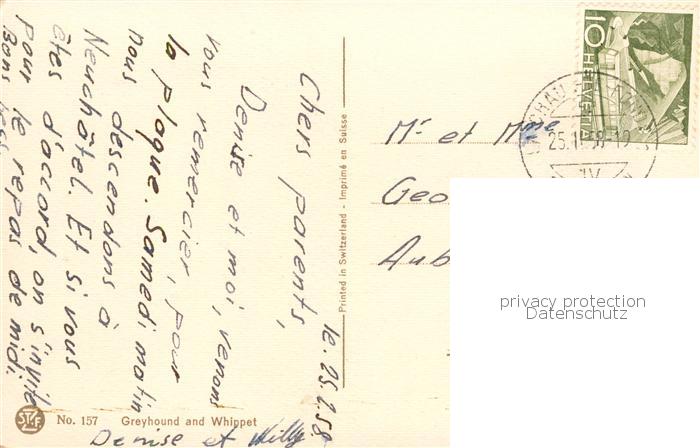 le. 25.2.58
Chers parents,
Denise et moi, venons
vous remercier, pour
la plaque. Samedi matin
nous descendons à
Neuchâtel. Et si vous
êtes d'accord, on s'invite
pour le repas de midi.
Bons
Denise et Willy
No. 157 Greyhound and Whippet
Printed in Switzerland - Imprimé en Suisse
Mr et Mme
Geo
Aub
10
HELVETIA
privacy protection
Datenschutz